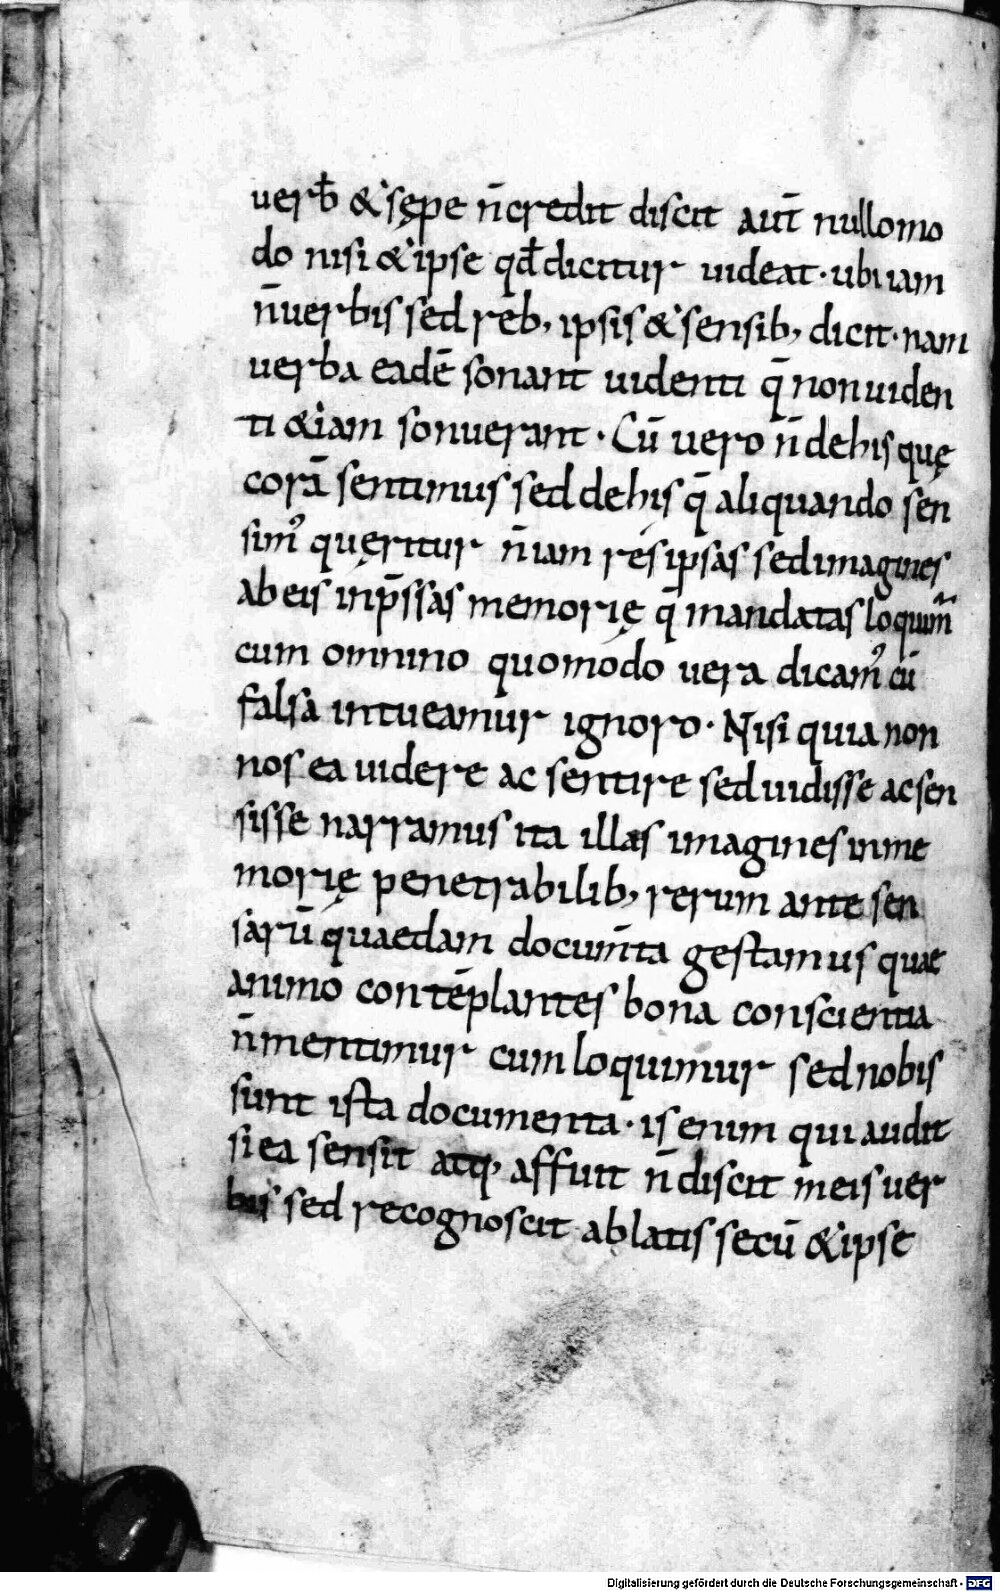 uerb̄ & sępe n̄credit discit aut̄ nullomo
do nisi & ipse qđdicitur uideat · ubi iam
n̄uerbis sed reb, ipsis & sensib, dicit · nam
uerba eadē sonant uidenti q̄ nonuiden
ti & iam sonuerant · Cū uero n̄ dehis quę
corā sentimus sed dehis q̄ aliquando sen
sim᾿ quęritur n̄ iam res ipsas sed imagines
ab eis inp̄ssas memorię q̄ mandatas loquim̄
cum omnino quomodo uera dicam᾿ cū
falsa intueamur ignoro · Nisi quia non
nos ea uidere ac sentire sed uidisse ac sen
sisse narramus ita illas imagines inme
morię penetrabilib, rerum ante sen
sarū quaedam docum̄ta gestamus quae
animo contēplantes bona conscientia
n̄mentimur cum loquimur sed nobis
sunt ista documenta · is enim qui audit
si ea sensit atq, affuit n̄ discit meis uer
bis sed recognoscit ablatis secū & ipse
Digitalisierung gefördert durch die Deutsche Forschungsgemeinschaft - DFG